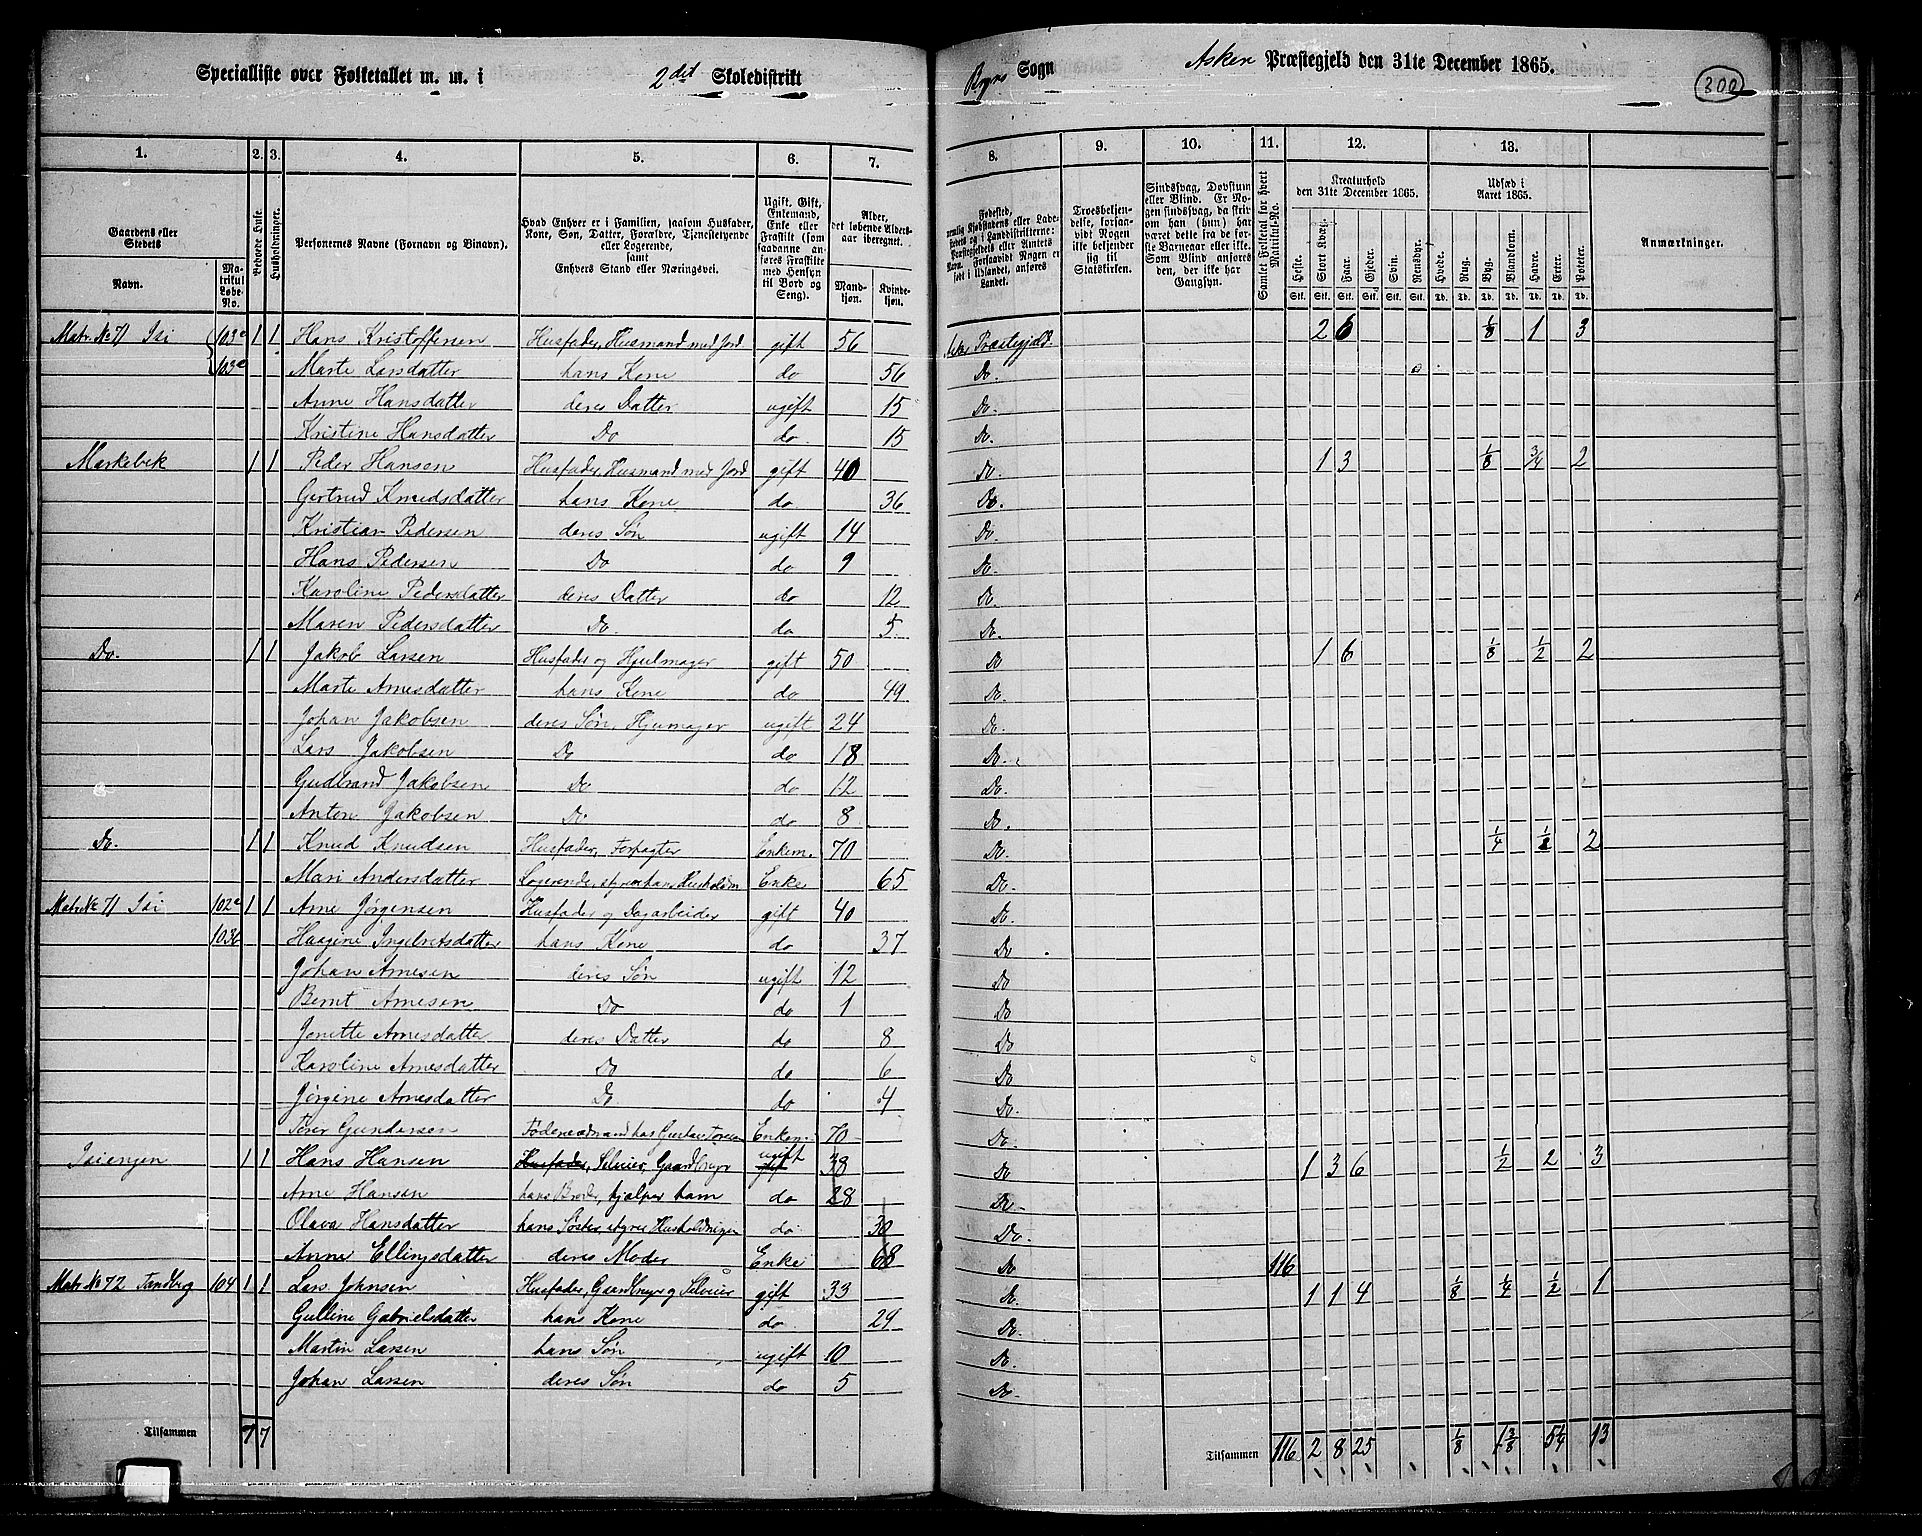 Specialliste over Folketallet m. m. i 2det Skoledistrikt
Sogn Asker Præstegjeld den 31te December 1865.
300
1. 2. 3. 4. 5. 6. 7. 8. 9. 10. 11. 12. 13.
Gaardens eller Stedets
Navn.
Matrikul Løbe-No.
Beboede Huse.
Husholdninger.
Personernes Navne (Fornavn og Tilnavn).
Hvad Enhver er i Familien, saasom Husfader, Kone, Søn, Datter, Forældre, Tjenestetyende eller Logerende, samt Enhvers Stand eller Næringsvei.
Ugift, Gift, Enkemand, Enke eller Fraskilt (som saadanne anføres Fraskilte med Hensyn til Bord og Seng).
Alder, det løbende Alders-aar iberegnet.
Mand-kjøn. Kvinde-kjøn.
Troesbekjendelse, forsaavidt Nogen ikke bekjender sig til Statskirken.
Sindssvag, Døvstum eller Blind. Er Nogen sindssvag, da skrives om han (hun) har været dette fra de første Barneaar eller ei. Som Blind anføres den, der ikke har Gangsyn.
Samlet Folketal for hvert Matrikuls-No.
Kreaturhold den 31te December 1865.
Heste. Stort Kvæg. Faar. Gjeder. Svin. Rensdyr.
Udsæd i Aaret 1865.
Hvede. Rug. Byg. Blandkorn. Havre. Erter. Poteter.
Anmærkninger.
Matr. No 71 Isi 103 1 1 Hans Kristoffersen Husfader, Husmand med Jord gift 56 Asker Præstegjeld 2 6 1/8 1 3
103 Marte Larsdatter hans Kone do 56 Do.
Anne Hansdatter deres Datter ugift 15 Do.
Kristine Hansdatter Do do. 15 Do.
Markebek 1 1 Peder Hansen Husfader, Husmand med Jord gift 40 Do. 1 3 1/8 3/4 2
Gertrud Knudsdatter hans Kone do 36 Do.
Kristian Pedersen deres Søn ugift 14 Do.
Hans Pedersen Do do 9 Do.
Karoline Pedersdatter deres Datter do 12 Do.
Maren Pedersdatter Do. do 5 Do.
Do. 1 1 Jakob Larsen Husfader og Hjulmager gift 50 Do 1 6 1/8 1/2 2
Marte Arnesdatter hans Kone do 49 Do.
Johan Jakobsen deres Søn, Hjumager ugift 24 Do.
Lars Jakobsen Do do 18 Do.
Gudbrand Jakobsen Do do 12 Do.
Anton Jakobsen Do do 8 Do.
Do. 1 1 Knud Knudsen Husfader, Forpagter Enkem. 70 Do. 1/4 1/2 2
Mari Andersdatter Logerende, styrer hans Husholdn Enke 65 Do.
Matr No 71 Isi 102 1 1 Arne Jørgensen Husfader og Dagarbeider gift 40 Do.
103 Haagene Ingebretsdatter hans Kone do 37 Do
Johan Arnesen deres Søn ugift 12 Do
Bernt Arnesen Do do 1 Do
Jonette Arnesdatter deres Datter do 8 Do
Karoline Arnesdatter Do do 6 Do
Jørgine Arnesdatter Do do 4 Do.
Gundersen Enkem. 70 Do.
Isiengen 1 1 Hans Hansen Husfader, Selveier, Gaardbruger gift ugift 38 Do 1 3 6 1/2 2 3
Arne Hansen hans Broder, hjælper ham do 28 Do
Olava Hansdatter hans Søster, styrer Husholdningen do 30 Do.
Anne Ellingsdatter deres Moder Enke 68 Do 116
Matr No 72 Tandberg 104 1 1 Lars Johnsen Husfader, Gaardbruger og Selveier gift 33 Do. 1 1 4 1/8 1/4 1/2 1
Gulline Gabrielsdatter hans Kone do 29 Do.
Martin Larsen hans Søn ugift 10 Do.
Johan Larsen deres Søn do 5 Do.
Tilsammen 7 7
Tilsammen 116 2 8 25 1/8 1 3/8 5 1/4 13